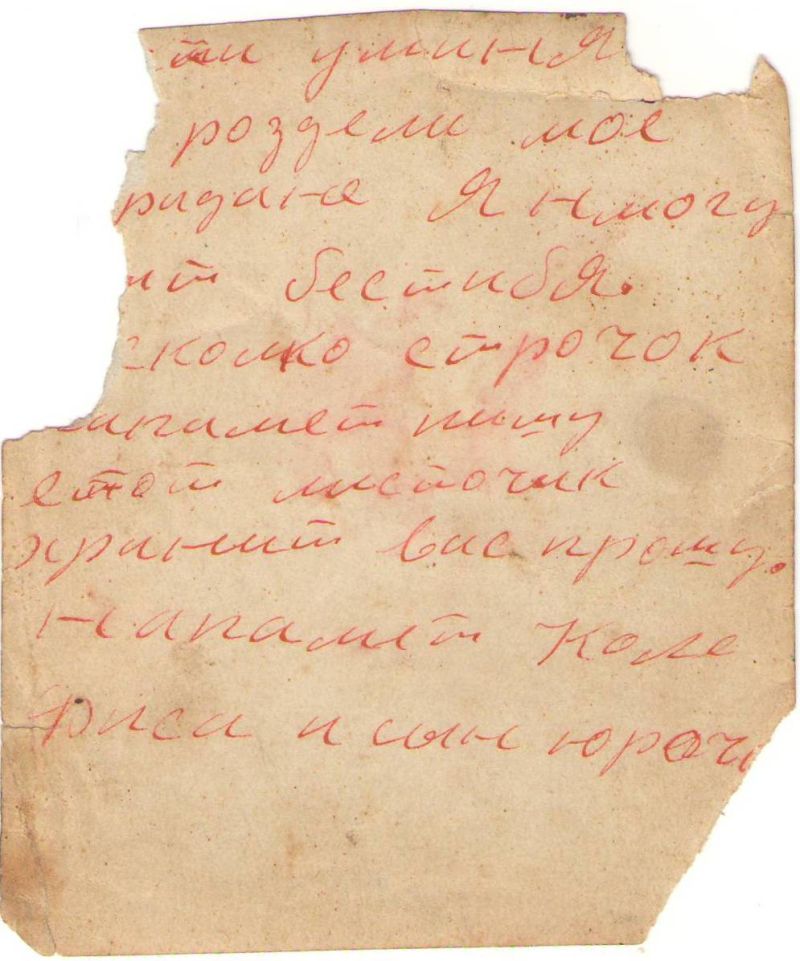 ти уминя
роздели мое
ридане Я нмогу
ит бестибя.
сколко строчок
напамет пишу
етот листочик
хранит вас прошу.
напамет Коле
Фиса и сын юрочк